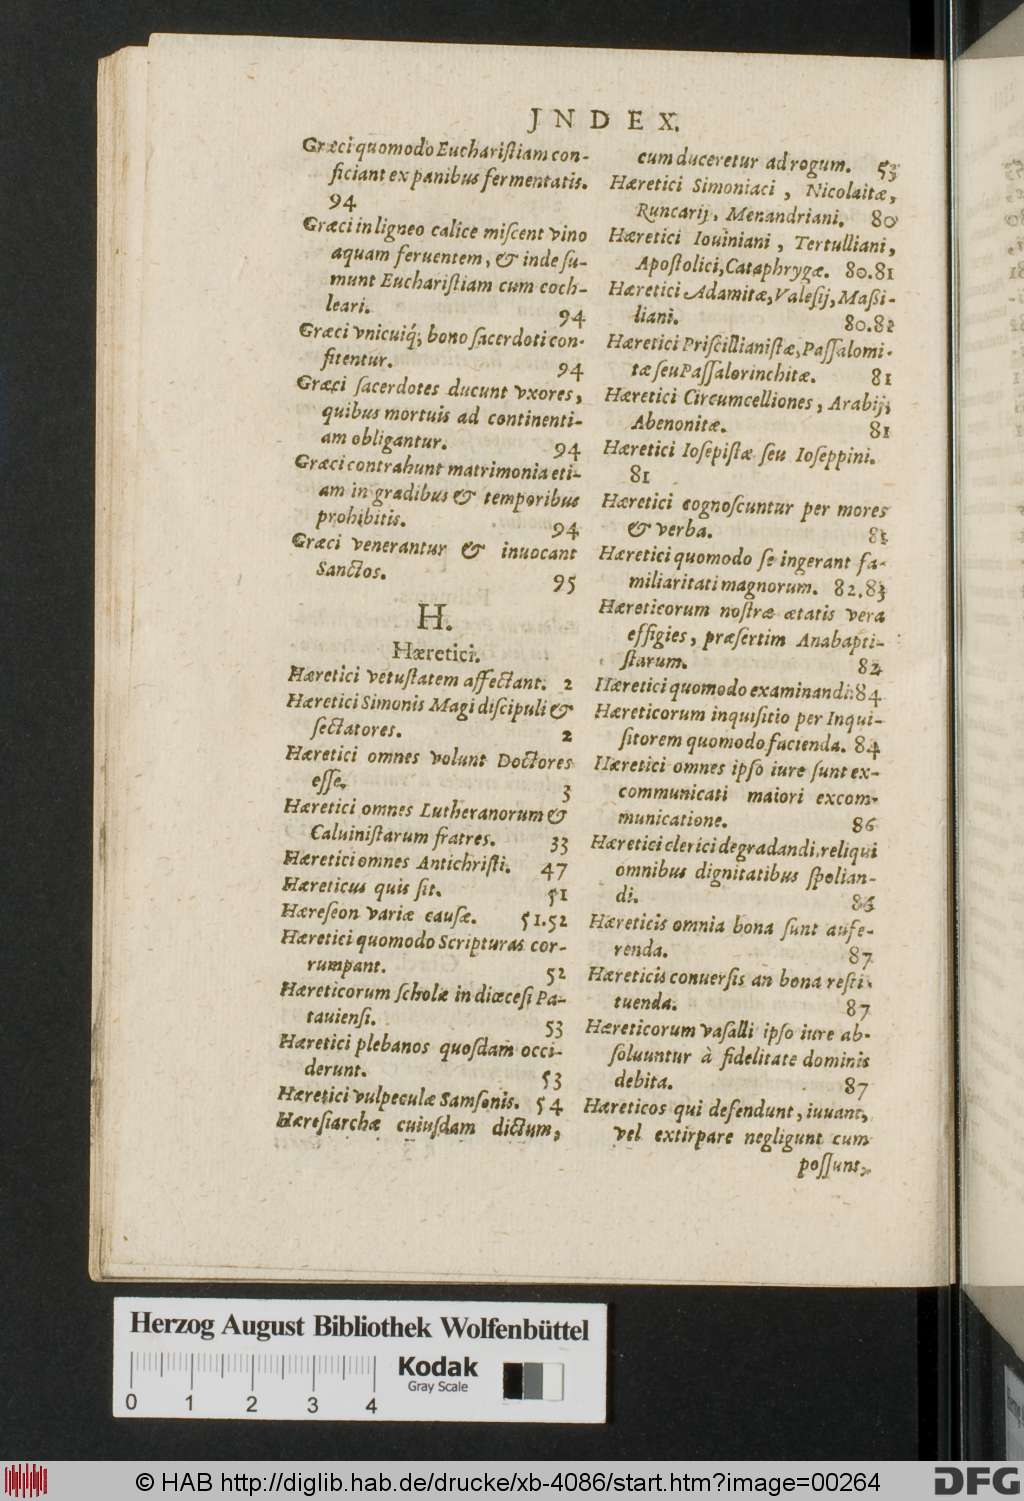 JNDEX.
Græci quomodo Euchariſtiam con-
ficiant ex panibus fermentatis.
94
Græci in ligneo calice miſcent vino
aquam feruentem, & inde ſu-
munt Euchariſtiam cum coch-
leari. 94
Græci vnicuiq́; bono ſacerdoti con-
fitentur. 94
Græci ſacerdotes ducunt vxores,
quibus mortuis ad continenti-
am obligantur. 94
Græci contrahunt matrimonia eti-
am in gradibus & temporibus
prohibitis. 94
Græci venerantur & inuocant
Sanctos. 95
H.
Hæretici.
Hæretici vetuſtatem affectant. 2
Hæretici Simonis Magi diſcipuli &
ſectatores. 2
Hæretici omnes volunt Doctores
eſſe. 3
Hæretici omnes Lutheranorum &
Caluiniſtarum fratres. 33
Hæretici omnes Antichriſti. 47
Hæreticus quis ſit. 51
Hæreſeon variæ cauſæ. 51.52
Hæretici quomodo Scripturas cor-
rumpant. 52
Hæreticorum ſcholæ in diœceſi Pa-
tauienſi. 53
Hæretici plebanos quoſdam occi-
derunt. 53
Hæretici vulpeculæ Samſonis. 54
Hæreſiarchæ cuiuſdam dictum,
cum duceretur ad rogum. 53
Hæretici Simoniaci, Nicolaitæ,
Runcarij, Menandriani. 80
Hæretici Iouiniani, Tertulliani,
Apoſtolici, Cataphrygæ. 80.81
Hæretici Adamitæ, Valeſij, Maßi-
liani. 80.82
Hæretici Priſcillianiſtæ, Paſſalomi-
tæ ſeu Paſſalorinchitæ. 81
Hæretici Circumcelliones, Arabij,
Abenonitæ. 81
Hæretici Ioſepiſtæ ſeu Ioſeppini.
81
Hæretici cognoſcuntur per mores
& verba. 81
Hæretici quomodo ſe ingerant fa-
miliaritati magnorum. 82.83
Hæreticorum noſtræ ætatis vera
effigies, præſertim Anabapti-
ſtarum. 84
Hæretici quomodo examinandi. 84
Hæreticorum inquiſitio per Inqui-
ſitorem quomodo facienda. 84
Hæretici omnes ipſo iure ſunt ex-
communicati maiori excom-
municatione. 86
Hæretici clerici degradandi, reliqui
omnibus dignitatibus ſpolian-
di. 86
Hæreticis omnia bona ſunt aufe-
renda. 87
Hæreticis conuerſis an bona reſti-
tuenda. 87
Hæreticorum vaſalli ipſo iure ab-
ſoluuntur à fidelitate dominis
debita. 87
Hæreticos qui defendunt, iuuant,
vel extirpare negligunt cum
poſſunt,
Herzog August Bibliothek Wolfenbüttel
Kodak
Gray Scale
0 1 2 3 4
© HAB http://diglib.hab.de/drucke/xb-4086/start.htm?image=00264
DFG